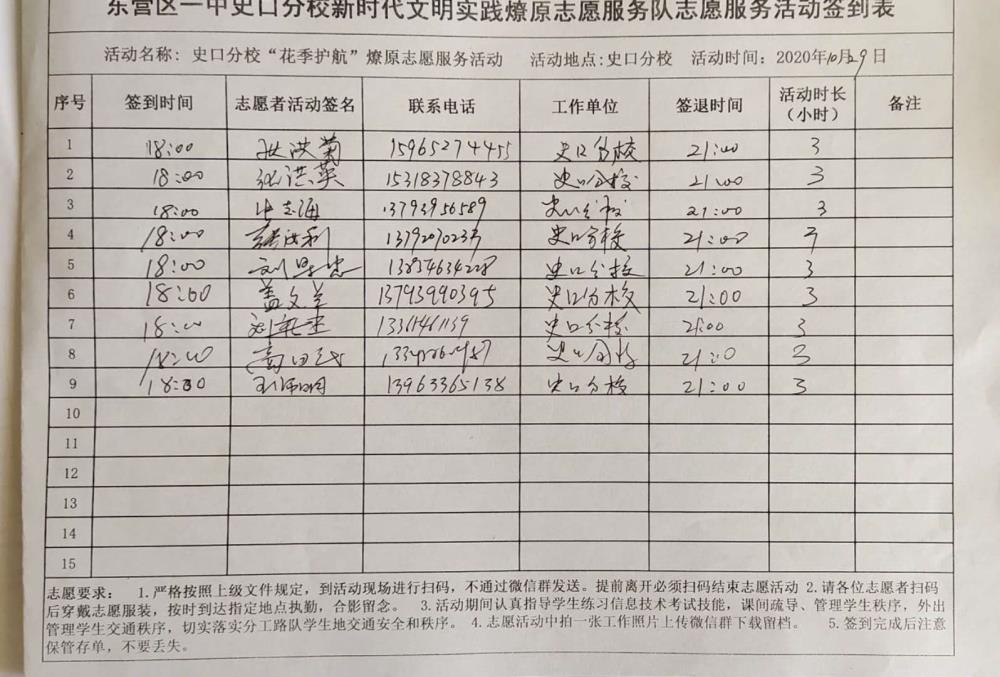 东营区一中史口分校新时代文明实践燎原志愿服务队志愿服务活动签到表
活动名称: 史口分校“花季护航”燎原志愿服务活动 活动地点:史口分校 活动时间: 2020年10月29日
序号 签到时间 志愿者活动签名 联系电话 工作单位 签退时间 活动时长（小时） 备注
1 18:00 洪菊 15965274455 史口分校 21:00 3
2 18:00 张洪英 15318378843 史口分校 21:00 3
3 18:00 志海 13793956589 史口分校 21:00 3
4 18:00 史口分校 21:00 3
5 18:00 刘 13854634228 史口分校 21:00 3
6 18:00 盖文兰 13793990395 史口分校 21:00 3
7 18:00 刘 史口分校 21:00 3
8 18:00 史口分校 21:00 3
9 18:00 明 13963365138 史口分校 21:00 3
10
11
12
13
14
15
志愿要求: 1.严格按照上级文件规定，到活动现场进行扫码，不通过微信群发送。提前离开必须扫码结束志愿活动 2.请各位志愿者扫码
后穿戴志愿服装，按时到达指定地点执勤，合影留念。 3.活动期间认真指导学生练习信息技术考试技能，课间疏导、管理学生秩序，外出
管理学生交通秩序，切实落实分工路队学生地交通安全和秩序。 4.志愿活动中拍一张工作照片上传微信群下载留档。 5.签到完成后注意
保管存单，不要丢失。